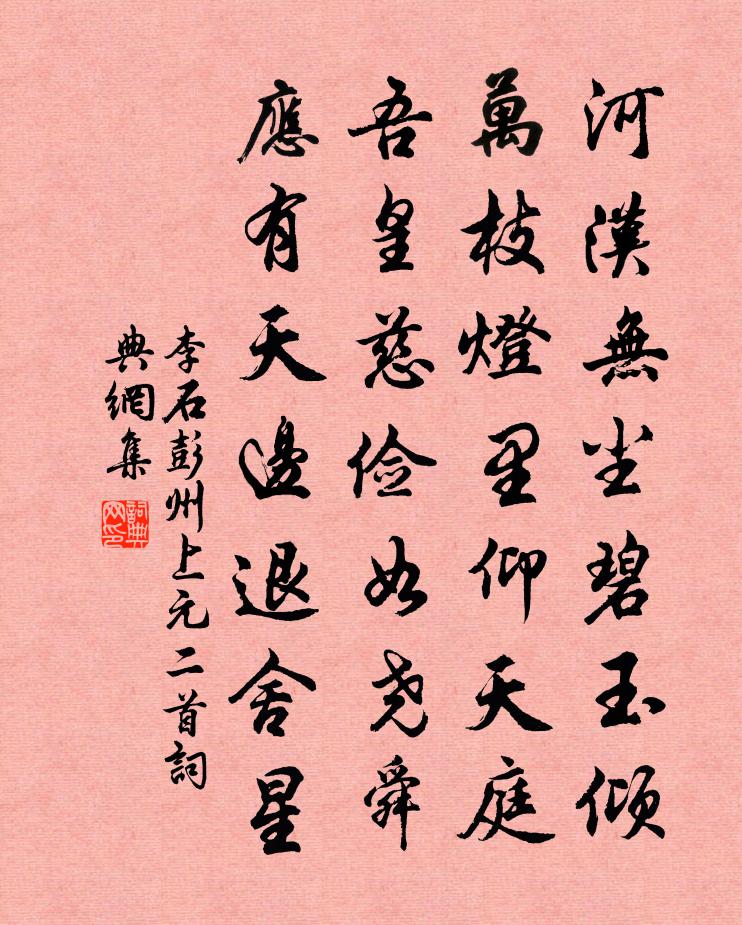 河漢無尘碧玉倾
萬枝燈里仰天庭
吾皇慈俭如尧舜
應有天邊退舍星
李石彭州上元二首詞
典網集
詞典网印